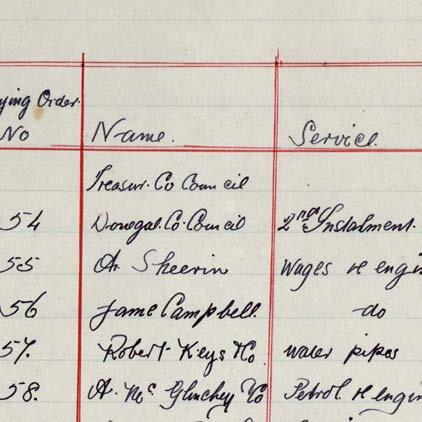 ying Order
No Name. Service.
Treasur. Co Council
54 Donegal. Co. Council 2nd Instalment.
55 Sheerin Wages re engi
56 Jame Campbell. do
57. Robert Keys &Co water pipes
58. A. Mc Glinchey &Co Petrol re engin